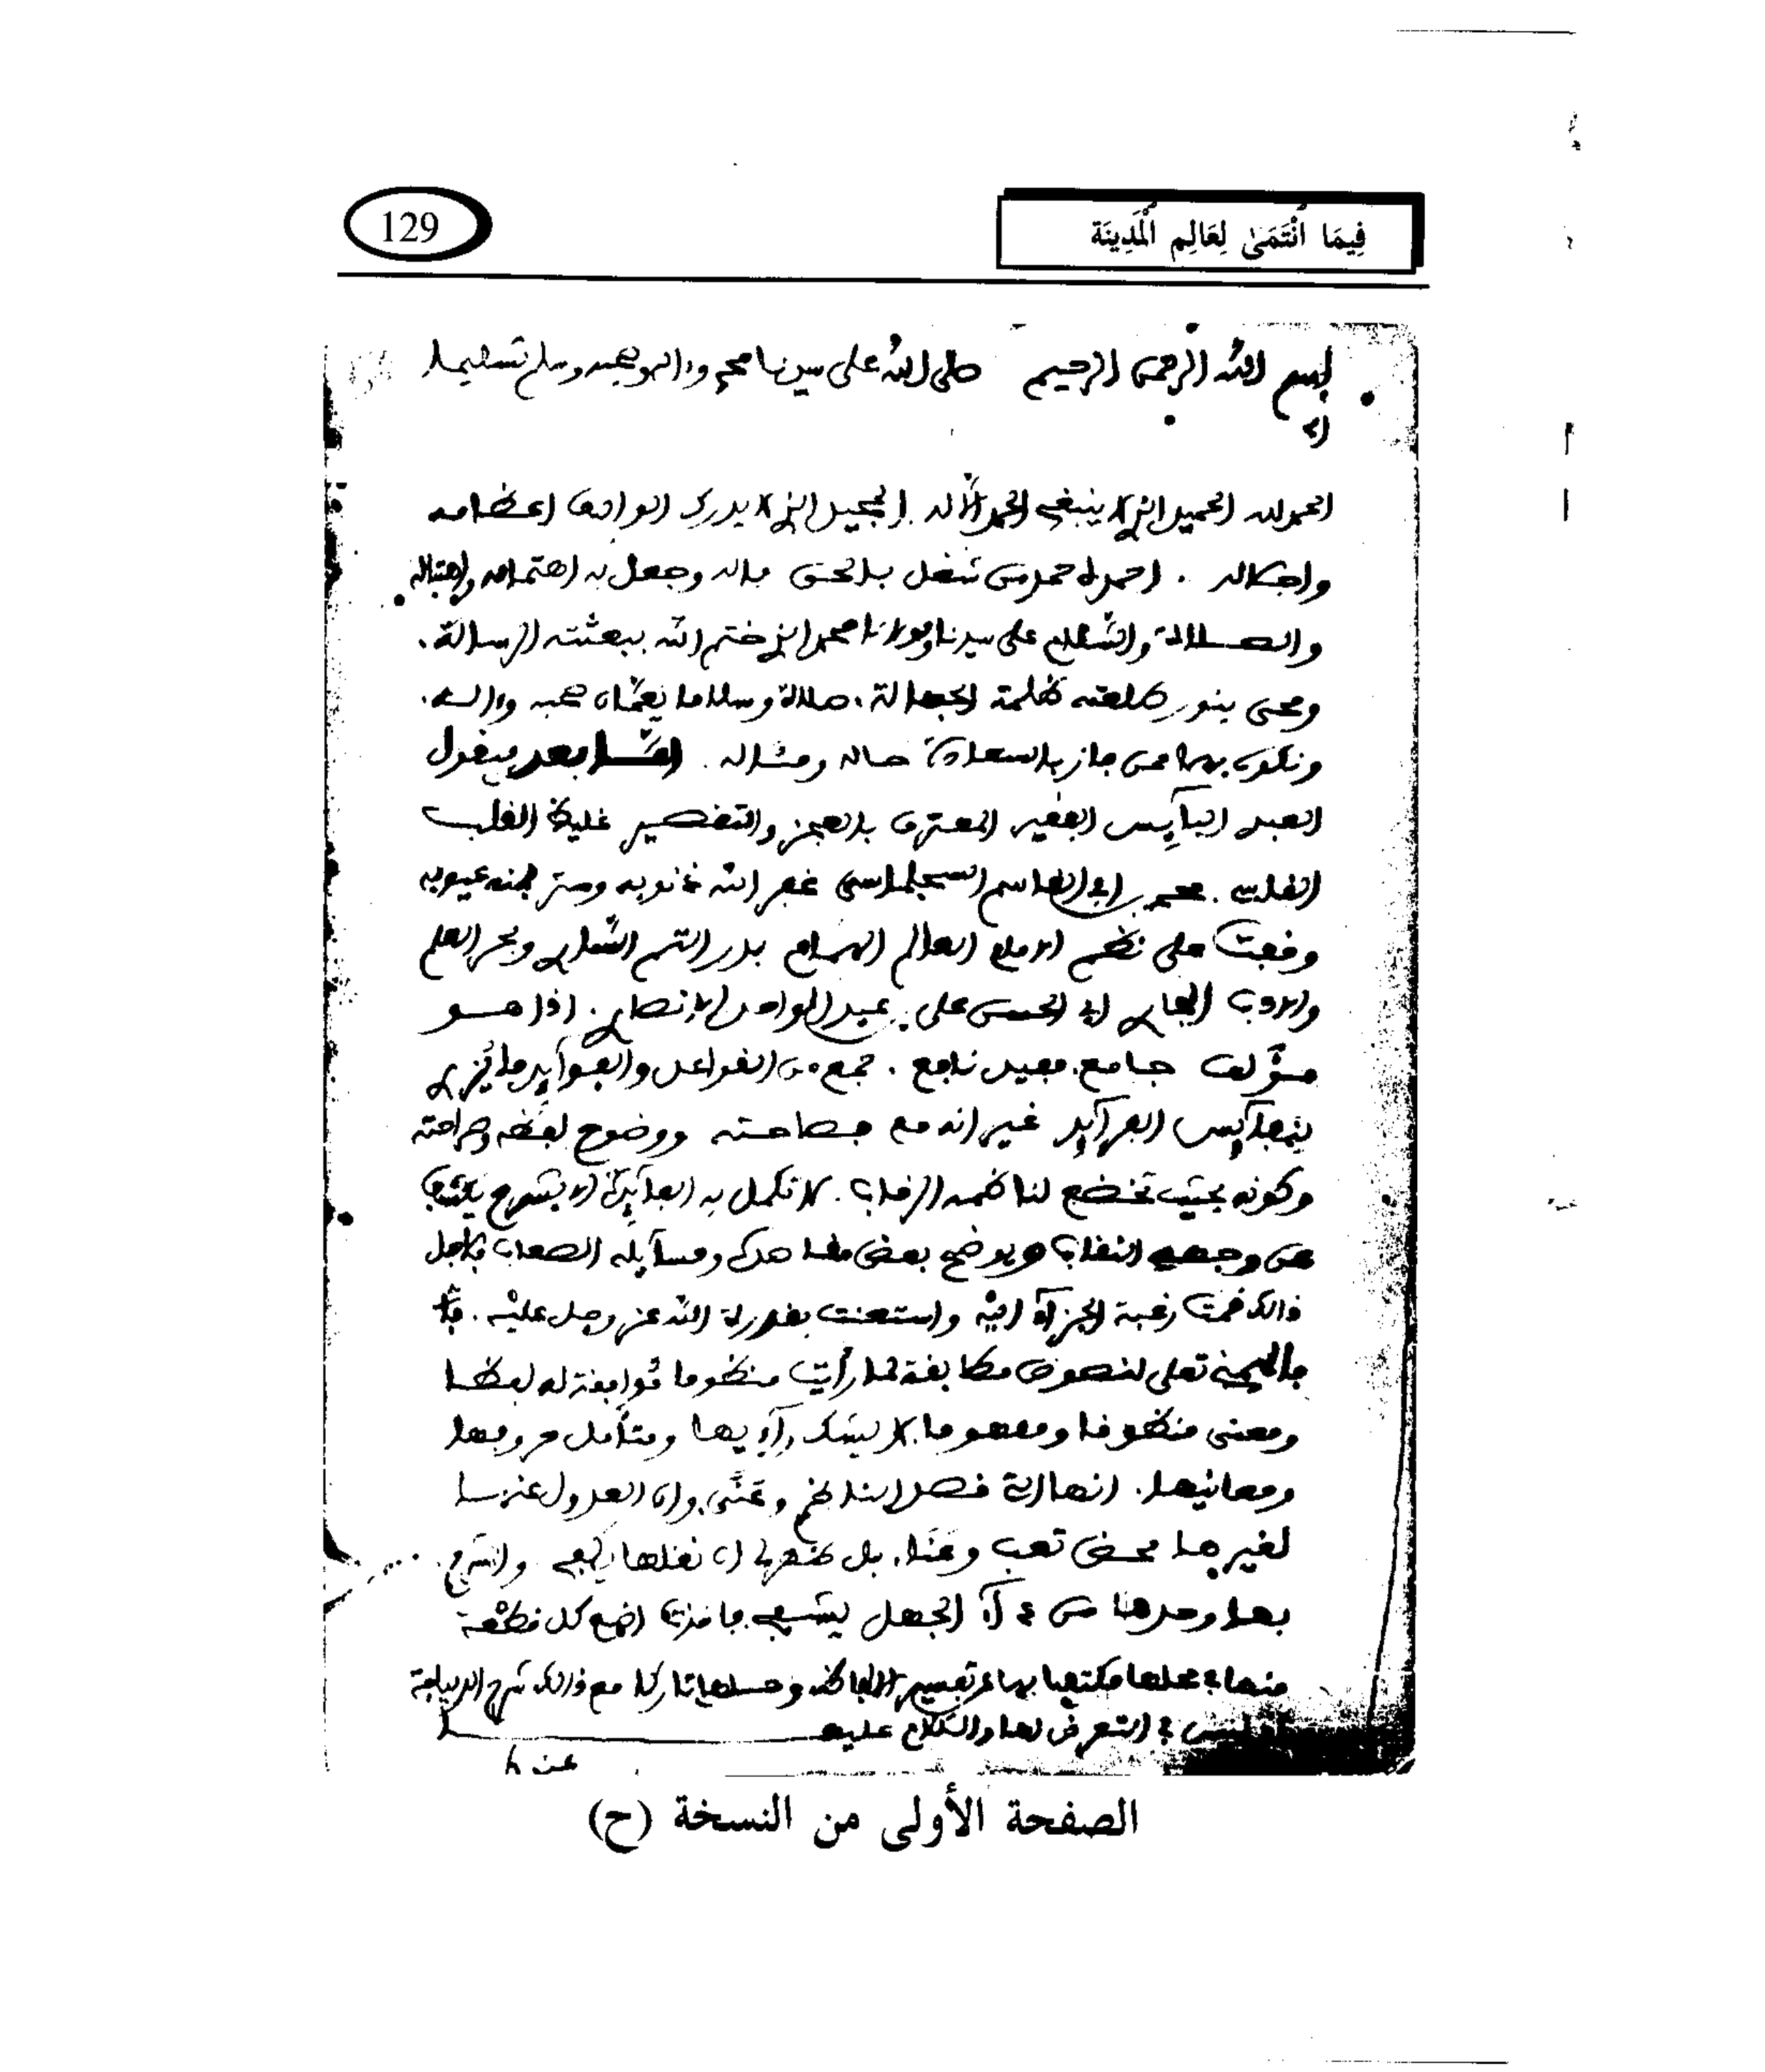 فِيمَا ٱنْتَمَىٰ لِعَالِمِ ٱلْمَدِينَة
129
بسم الله الرحمن الرحيم صلى الله على سيدنا محمد وءاله وصحبه وسلم تسليما
الحمد لله الحميد الذي لا ينبغي الحمد إلا له المجيد الذي لا يدرك الواصف إعظامه
وإجلاله . أحمده حمد من شغل بالحق باله وجعل به اهتمامه واهتباله
والصلاة والسلام على سيدنا ومولانا محمد الذي ختم الله ببعثته الرسالة .
ومحى بنور طلعته ظلمة الجهالة . صلاة وسلاما يعمان صحبه وءاله .
ونكون بهما ممن فاز بالسعادة حاله ومثاله . أما بعد فيقول
العبد البآيس الفقير المعترف بالعجز والتقصير غليظ القلب
القاسي . محمد بن أبي القاسم السجلماسي غفر الله ذنوبه وستر بمنه عيوبه
وقفت على نظم الإمام العالم الهمام بدر التم الساري وبحر العلم
والأدب الجاري أبي الحسن علي بن عبد الواحد الأنصاري . إذا هو
مؤلف جامع . مفيد نافع . جمع من القواعد والفوآيد ما يزري
بنفآيس الفرآيد غير أنه مع فصاحته ووضوح لفظه وصراحته
وكونه بحيث تخضع لناظمه الرقاب . لا تكمل به الفآيدة إلا بشرح يكشف
عن وجهه النقاب ويوضح بعض مقاصده ومسآيله الصعاب فلأجل
ذالك قمت رغبة الجزآء إليه واستعنت بقدرة الله عز وجل عليه .
تعلى لنصوص مطابقة لما رأيت منظوما موافقة له لفظا
ومعنى منطوقا ومفهوما . لا يشك رآءيها ومتأمل حروفها
ومعانيها . أنها التي قصد الناظم وعنى . وأن العدول عنها
لغيرها محض تعب وعناء . بل ظهر لي أن نقلها يكفي والشرح
بها وحدها من دآء الجهل يشفي . فأخذت أضع كل قطعة
منها في محلها مكتفيا بها عن تفسير الألفاظ وحلها تاركا مع ذالك شرح الديباجة
إذ ليس في التعرض لها والكلام عليها
عندي
الصفحة الأولى من النسخة (ح)